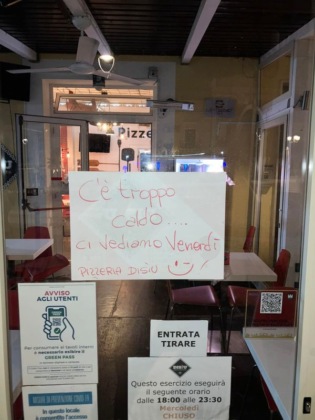 Pizze
C'è troppo
caldo....
ci vediamo Venerdì
PIZZERIA DISIÙ
AVVISO
AGLI UTENTI
Per consumare ai tavoli interni
è necessario esibire il
GREEN PASS
ENTRATA
TIRARE
Questo esercizio eseguirà
il seguente orario
dalle 18:00 alle 23:30
Mercoledì
CHIUSO
MISURE DI PREVENZIONE COVID-19
In questo locale
è consentito l'accesso